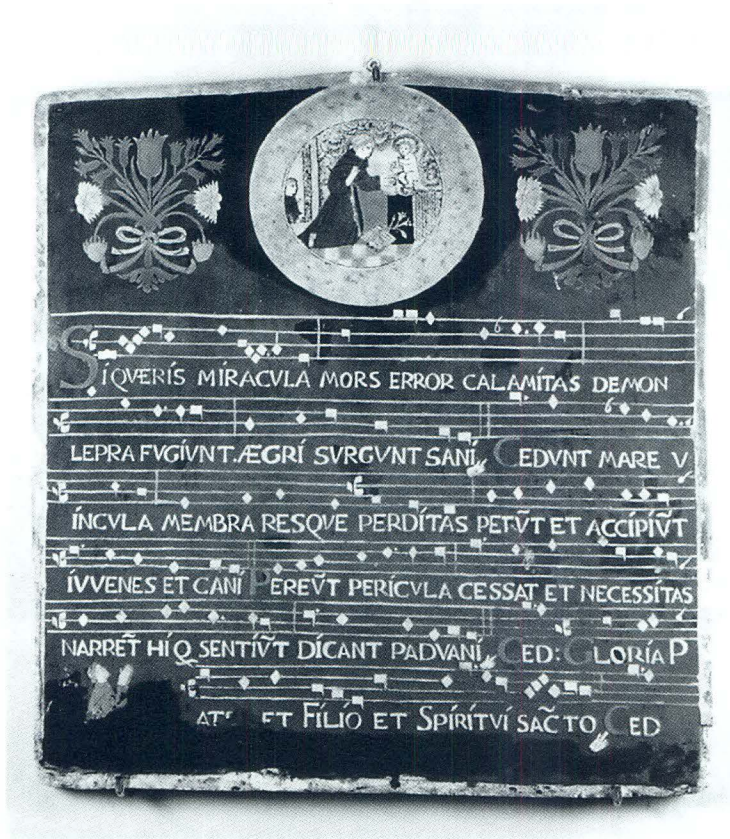 SI QVÆRÍS MÍRACVLA MORS ERROR CALAMÍTAS DEMON
LEPRA FVGÍVNT. ÆGRÍ SVRGVNT SANÍ CEDVNT MARE V
ÍNCVLA MEMBRA RESQVE PERDÍTAS PETV̄T ET ACCÍPÍV̄T
ÍVVENES ET CANÍ PEREV̄T PERÍCVLA CESSAT ET NECESSÍTAS
NARRET̄ HÍ Q SENTÍV̄T DÍCANT PADVANÍ CED: GLORÍA P
ET FÍLÍO ET SPÍRÍTVÍ SAC̄TO CED